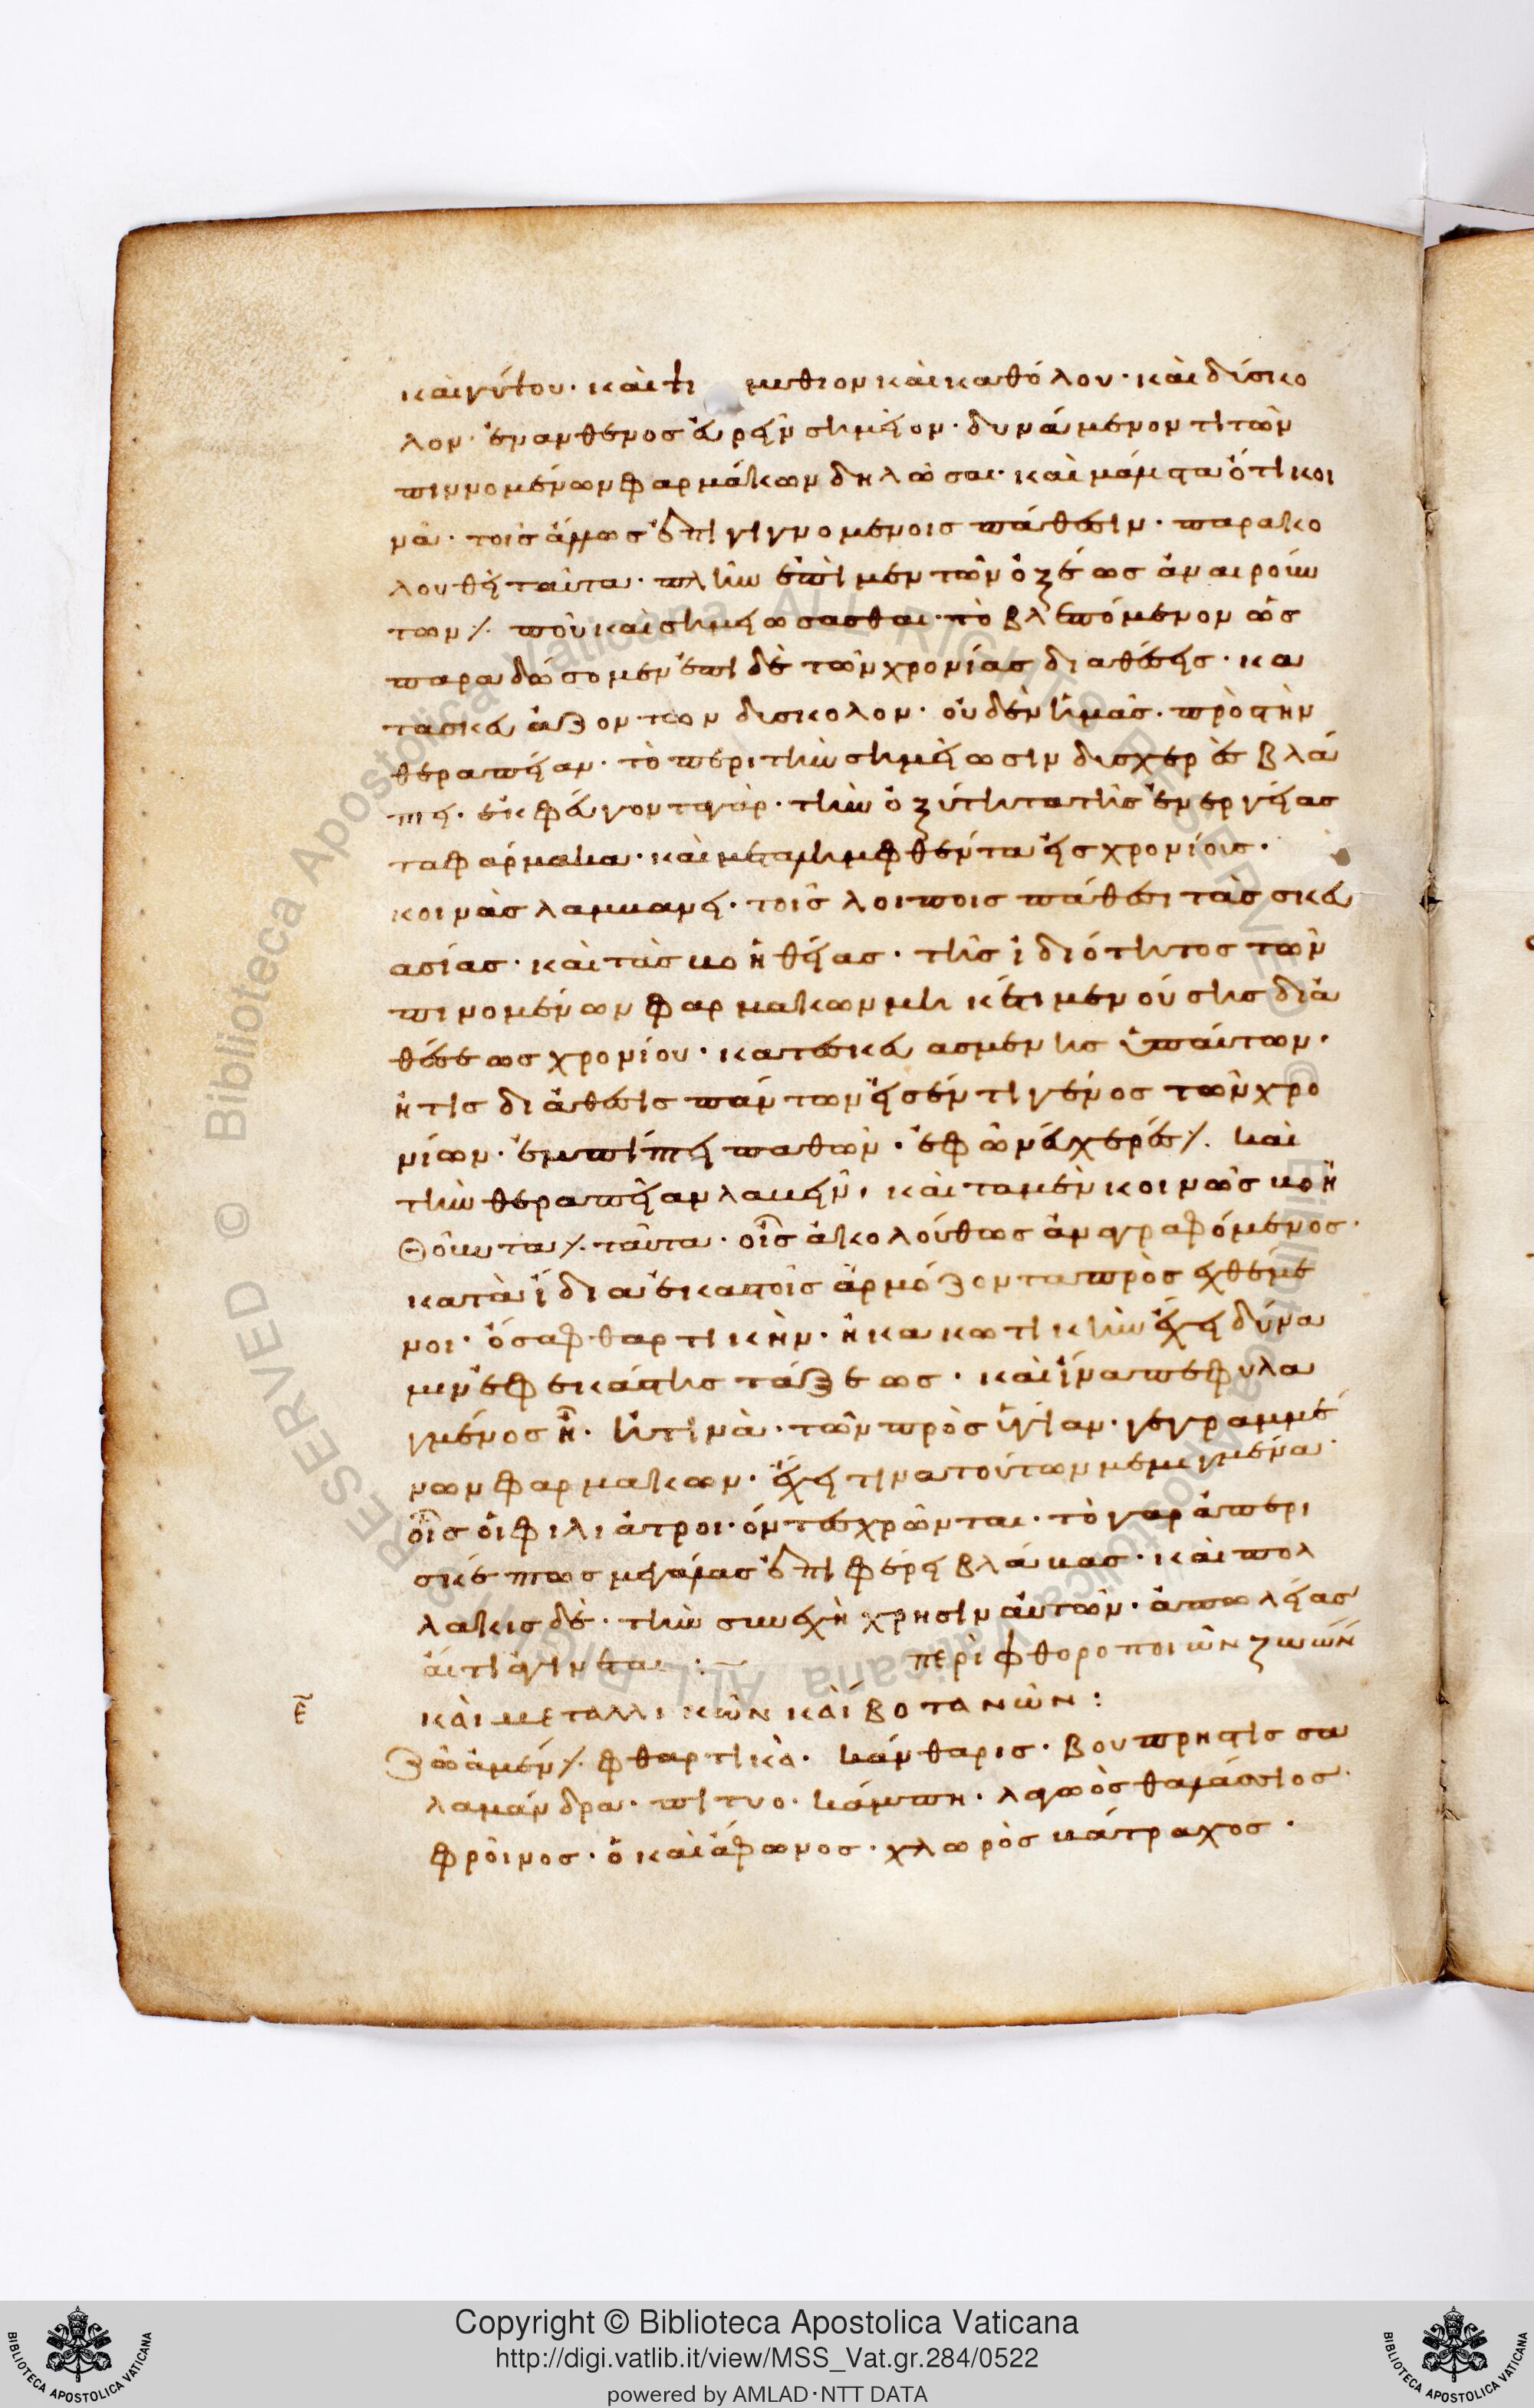 καὶ γύψου· καὶ ψι μυθίου καὶ καθόλου· καὶ δύσκο
λον· ἐναργθένος εὑρεῖν σημεῖον· δυνάμενόν τι τῶν
πιννομένων φαρμάκων δηλῶσαι· καὶ μάλιστα ὅτι κοι
νὰ· τοῖς ἄλλως ἐπιγιγνομένοις πάθεσιν· παρακο
λουθεῖ ταῦτα· πλὴν ἐπὶ μὲν τῶν ὀξέως ἀναιρούν
των· ποῦ καὶ σημειώσασθαι· τὸ βλεπόμενον ὡς
παραδώσομεν ἐπὶ δὲ τῶν χρονίας διαθέσης· κα
τασκευαζόντων δισκολον· οὐδὲν ἡμᾶς· πρὸς τὴν
θεραπείαν· τὸ περὶ τὴν σημείωσιν δισχερὲς βλά
πτει· ἐκφεύγοντα γὰρ· τὴν ὀξύτητα τῆς ἐνεργείας
τα φάρμακα· καὶ μεταλημφθέντα εἰς χρονίοις·
κοινὰς λαμβανει· τοῖς λοιποῖς πάθεσι τὰς σκευ
ασίας· καὶ τὰς βοηθείας· τῆς ἰδιότητος τῶν
πινομένων φαρμάκων μηκέτι μενούσης διὰ
θέσεως χρονίου· κατεσκευασμένης ὑπ αὐτῶν·
ἥτις διάθεσις πάντων εἰς ἕν τι γένος τῶν χρο
νίων· ἐμπίπτει παθῶν· ἐφ ὧν εὐχερὲς· καὶ
τὴν θεραπείαν λαβεῖν· καὶ τὰ μὲν κοινῶς βοη
θοῦντα· ταῦτα· οἷς ἀκολούθως ἀναγραφόμενος·
κατὰ ἰδία ἑκάστοις ἁρμόζοντα πρὸς ἐχθέμε
νοι· ὅσα φθαρτικὴν· ἢ κακωτικὴν ἔχει δύνα
μιν ἐφ ἑκάστης τάξεως· καὶ ἵνα πεφυλα
γμένος ᾖ· ἥ τινὰ· τῶν πρὸς ὑγίαν· γεγραμμέ
νων φαρμάκων· ἔχει τινα τούτων μεμιγμένα·
οἷς οἱ φιλιάτροι· ὄντες χρῶνται· τὸ γὰρ ἀπερι
σκέπτως μεγάλας ἐπιφέρει βλάβας· καὶ πολ
λάκις δὲ· τὴν συνεχῆ χρῆσιν αὐτῶν· ἀπωλείας
αἰτί γίνεται :~ περὶ φθοροποιῶν ζώων
ε̄ καὶ μεταλλικῶν καὶ βοτανῶν :
Ζῶα μέν· φθαρτικὰ· κάνθαρις· βουπρηστις σα
λαμάνδρα· πιτυο· κάμπη· λαγωὸς θαλάσσιος·
φρῦνος· ὁ καὶ ἄφωνος· χλωρὸς βάτραχος·
Copyright © Biblioteca Apostolica Vaticana
http://digi.vatlib.it/view/MSS_Vat.gr.284/0522
powered by AMLAD·NTT DATA